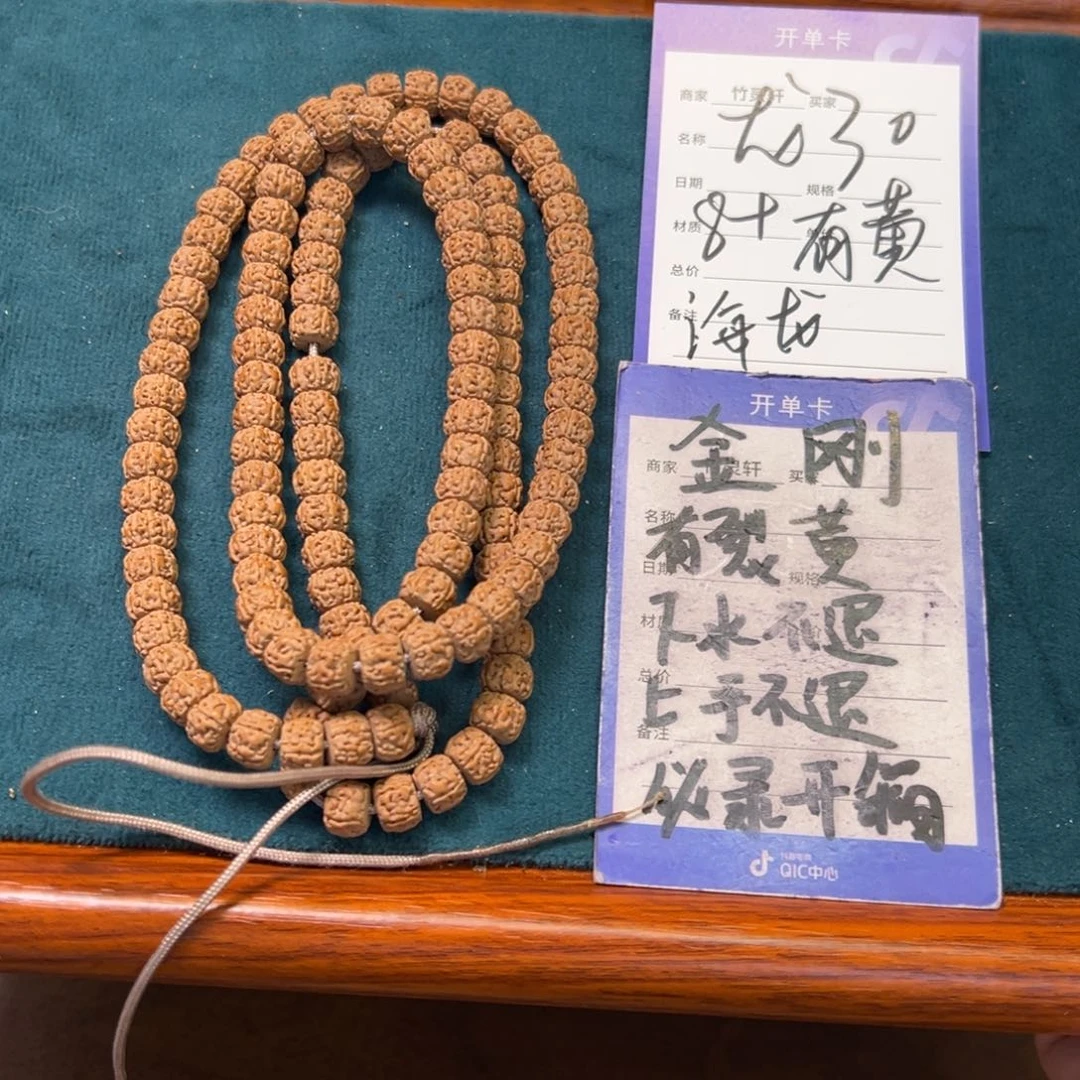 开单卡
商家 竹灵轩 买家
名称
日期 规格
材质 8+ 有黄
总价
备注 海龙
开单卡
金刚
商家 灵轩 买
名称
有裂黄
日期 规格
材
下水不退
总价
上手不退
备注
必录开箱
抖音电商
QIC中心